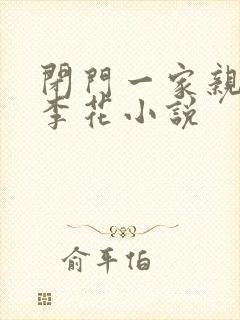 閉門一家親
李花小說
俞平伯